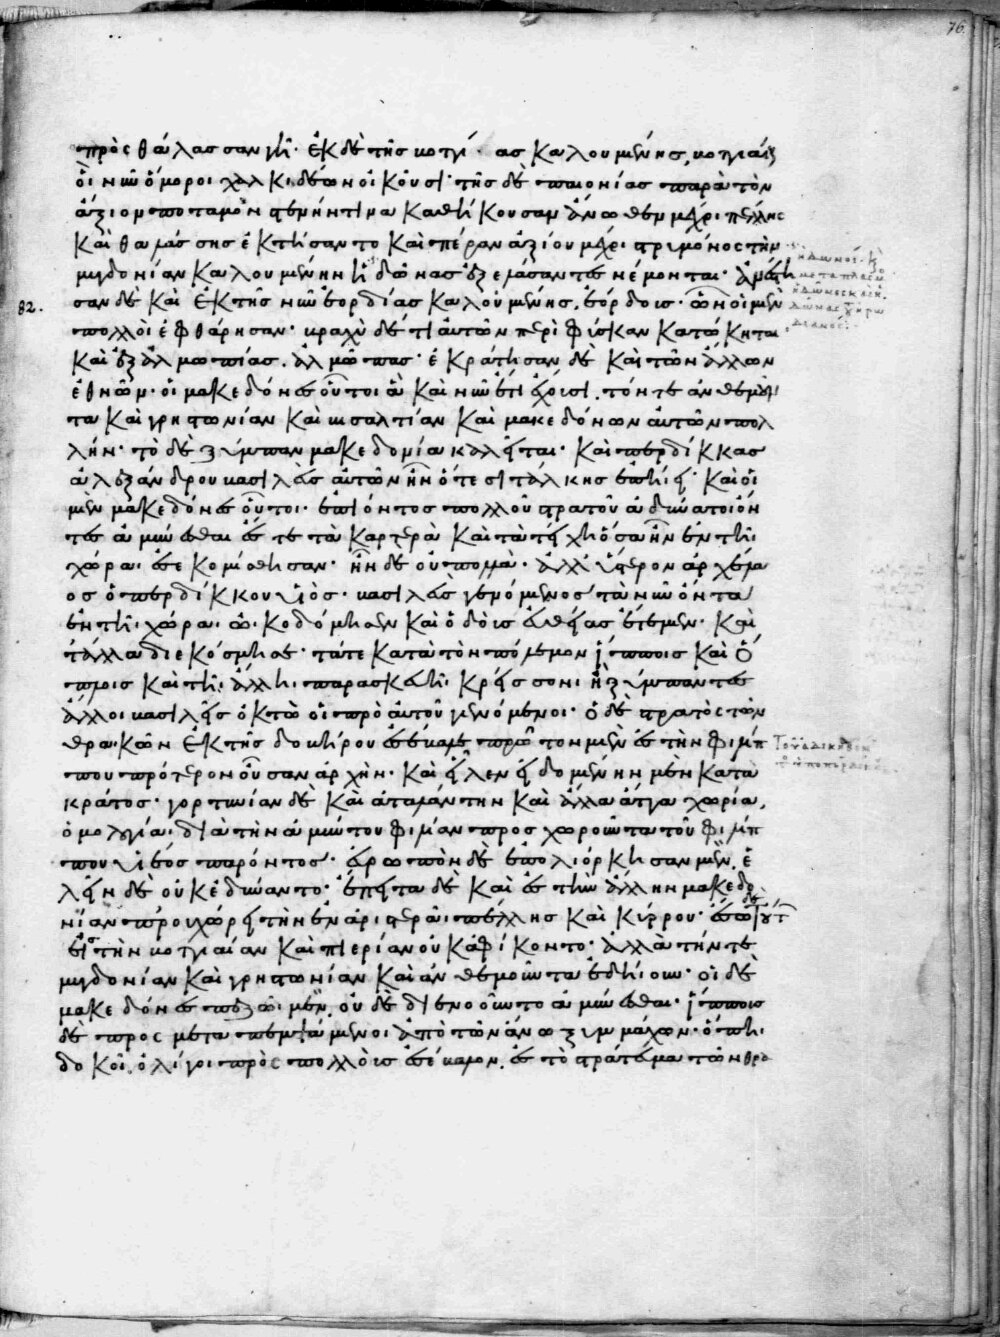 πρὸς θάλασσαν γῆ· ἐκ δὲ τῆς βοττί ας καλουμένης, βοττιαίους
οἳ νῦν ὅμοροι χαλκιδέων οἰκοῦσι· τῆς δὲ παιονίας παρὰ τὸν
ἄξιον ποταμὸν στενήν τινα καθήκουσαν ἄνωθεν μέχρι πέλλης
καὶ θαλάσσης ἐκτήσαντο καὶ πέραν ἀξίου μέχρι στρυμόνος τὴν
μυγδονίαν καλουμένην ἠδῶνας ἐξελάσαντες νέμονται· ἀνέστη
82.
σαν δὲ καὶ ἐκ τῆς νῦν ἐορδίας καλουμένης, ἐορδούς· ὧν οἱ μὲν
πολλοὶ ἐφθάρησαν· βραχὺ δέ τι αὐτῶν περὶ φύσκαν κατώκηται
καὶ ἐξ ἀλμωπίας. ἄλμωπας· ἐκράτησαν δὲ καὶ τῶν ἄλλων
ἐθνῶν· οἱ μακεδόνες οὗτοι ἃ καὶ νῦν ἔτι ἔχουσι. τόν τε ἀνθεμοῦν
τα καὶ γρηστωνίαν καὶ βισαλτίαν καὶ μακεδόνων αὐτῶν πολ
λήν· τὸ δὲ ξύμπαν μακεδονία καλεῖται· καὶ περδίκκας
ἀλεξάνδρου βασιλεὺς αὐτῶν ἦν ὅτε σιτάλκης ἐπήει· καὶ οἱ
μὲν μακεδόνες οὗτοι· ἐπιόντος πολλοῦ στρατοῦ ἀδύνατοι ὄν
τες ἀμύνεσθαι ἔς τε τὰ καρτερὰ καὶ τὰ τείχη ὅσα ἦν ἐν τῆι
χώραι ἐσεκομίσθησαν· ἦν δὲ οὐ πολλὰ· ἀλλ' ὕστερον ἀρχέλα
ος ὁ περδίκκου υἱὸς· βασιλεὺς γενόμενος τὰ νῦν ὄντα
ἐν τῆι χώραι ὠικοδόμησεν καὶ ὁδοὺς εὐθείας ἔτεμεν· καὶ
τἄλλα διεκόσμησε· τά τε κατὰ τὸν πόλεμον ἵπποις καὶ ὅ
πλοις καὶ τῆι ἄλληι παρασκευῆι κρείσσονι ἢ ξύμπαντες
ἄλλοι βασιλεῖς ὀκτὼ οἱ πρὸ αὐτοῦ γενόμενοι· ὁ δὲ στρατὸς τῶν
θραικῶν ἐκ τῆς δοβήρου ἐσέβαλε πρῶτον μὲν ἐς τὴν φιλίπ
που πρότερον οὖσαν ἀρχήν· καὶ εἷλεν εἰδομένην μὲν κατὰ
κράτος· γορτυνίαν δὲ καὶ ἀταλάντην καὶ ἄλλα ἄττα χωρία,
ὁμολογίαι διὰ τὴν ἀμύντου φιλίαν προσχωροῦντα τοῦ φιλίπ
που υἱέος παρόντος· εὐρωπὸν δὲ ἐπολιόρκησαν μὲν, ἑ
λεῖν δὲ οὐκ ἐδύναντο· ἔπειτα δὲ καὶ ἐς τὴν ἄλλην μακεδο
νίαν προυχώρει τὴν ἐν ἀριστερᾶι πέλλης καὶ κύρρου· ἔσω δὲ τούτ
ἐς τὴν βοττιαίαν καὶ πιερίαν οὐκ ἀφίκοντο· ἀλλὰ τήν τε
μυγδονίαν καὶ γρηστωνίαν καὶ ἀνθεμοῦντα ἐδήιουν· οἱ δὲ
μακεδόνες πεζῶι μὲν, οὐδὲ διενοοῦντο ἀμύνεσθαι· ἵππους
δὲ προσμεταπεμψάμενοι ἀπὸ τῶν ἄνω ξυμμάχων· ὅπηι
δοκοῖ, ὀλίγοι πρὸς πολλοὺς ἐσέβαλον, ἐς τὸ στράτευμα τῶν θρα
76.